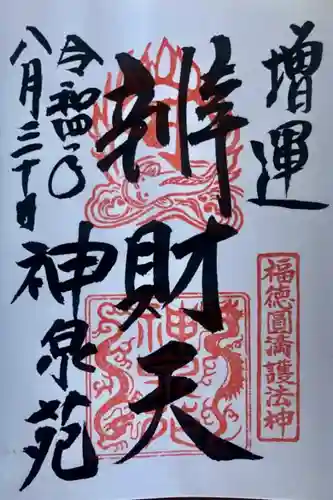 増運
福徳圓満護法神
辨財天
神泉苑
令和四年
八月三十日
神泉苑